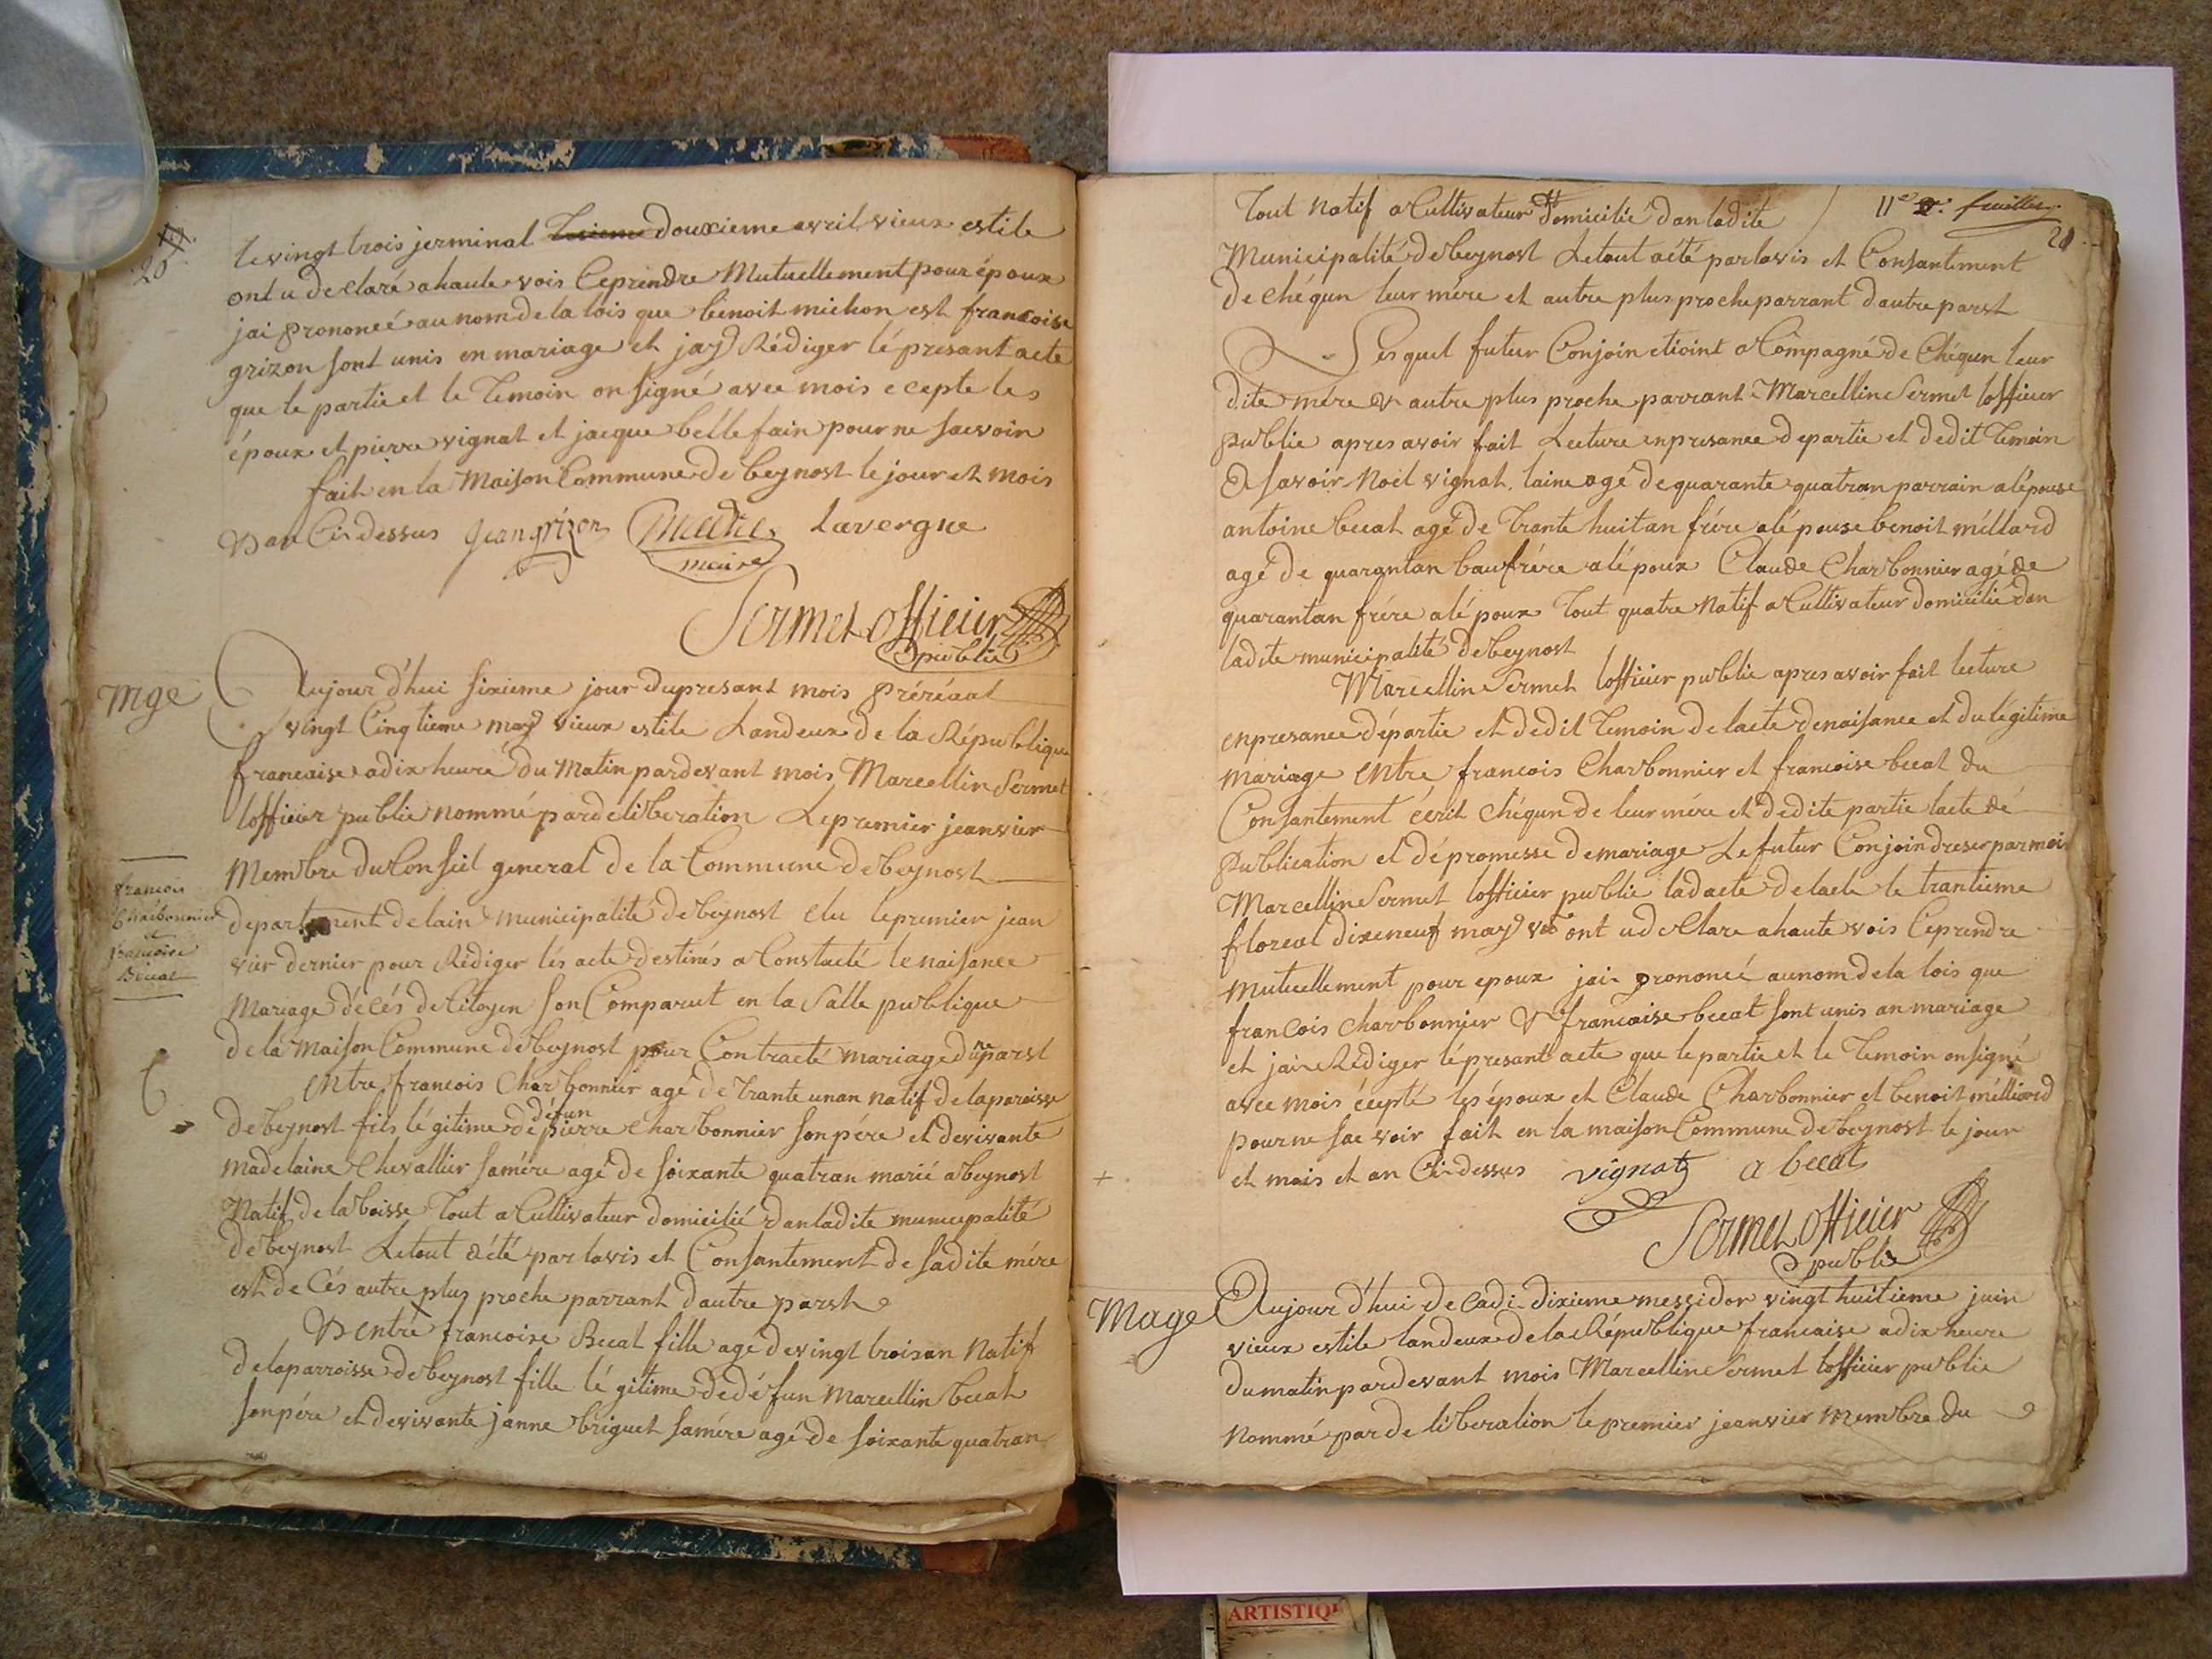 20
le vingt trois jerminal douxieme avril vieux estile
ont u declaré a haute vois ceprendre Mutuellement pour époux
jai prononcé au nom de la lois que benoit michon est francoise
grizon sont unis en mariage et jay Rédiger lé presant acte
que le partie et le Temoin on signé avec mois ecepte les
époux et pierre vignat et jacque belle fain pour ne sacvoir
fait en la Maison Commune de beynost le jour et mois
& an Ci dessus jean grizon maire Lavergne
Sermet officier
publie
Mge
Aujour d'hui sixieme jour du presant mois préréaal
vingt Cinqtieme may vieux estile Landeux de la République
francaise a dix heure du Matin pardevant mois Marcellin Sermet
lofficier publie nommé par deliberation Le premier jeanvier
Membre du Conseil general de la Commune de beynost
departement de lain municipalité de beynost elu le premier jean
vier dernier pour Rédiger lés acte destinés a Constacté le naisance
Mariage décés de Citoyen son Comparut en la Salle publique
de la Maison Commune de beynost pour Contracté mariage dune parst
francois
Charbonnier
et
francoise
Becat
Entre francois Charbonnier agé de trante un an natif de laparoisse
de beynost fils légitime de défun pierre charbonnier son pére et de vivante
madelaine Chevallier samére agé de soixante quatran marié a beynost
Natif de la boisse Tout a Cultivateur domicilié dan ladite municepalité
de beynost Letout aété par lavis et Consantement de sadite mére
est de Cés autre plus proche parrant dautre parst
& entre francoise Becat fille agé de vingt troisan Natif
de laparroisse de beynost fille lé gitime de défun Marcellin becat
son pére et de vivante janne briguet samére agé de soixante quatran
11e feuillet
20
Tout Natif a Cultivateur Domicilié dan ladite
Municipalité de beynost Letout aété par lavis et Consantement
de chéqun leur mére et autre plus proche parrant dautre parst
Lesquel futur Conjoin etioint a Compagné de Chéqun leur
dite mére & autre plus proche parrant Marcellin Sermet lofficier
publie apres avoir fait Lecture enpresance de partie et dedit Temoin
A savoir Noël vignat lainé agé de quarante quatran parrain a lépouse
antoine becat agé de Trante huitan frére alé pouse benoit mélliard
agé de quarantan baufrére a lé poux Claude Charbonnier agé de
quarantan frére alé poux Tout quatre Natif a Cultivateur domicilié dan
ladite municipalité de beynost
Marcellin Sermet lofficier publie apres avoir fait lecture
enpresance départie et dedit Temoin de lacte denaisance et du légitime
mariage entre francois Charbonnier et francoise becat du
Consantement écrit Chéqun de leur mére et dedite partie lacte dé
Publication et dépromesse de mariage Le futur Conjoin dreser par moi
Marcellin Sermet lofficier publie ladacte de lacte le trantieme
floreal dixeneuf may ont u declare ahaute vois Ceprendre
mutuellement pour epoux jai prononcé aunom dela lois que
francois charbonnier & francoise becat sont unis an mariage
et jai Rédiger lé presant acte que le partie et le Temoin on signé
avec mois écepté lés époux et Claude Charbonnier et benoit mélliard
pour ne sacvoir fait en la maison Commune de beynost le jour
et mois et an Ci dessus vignat a becat
Sermet officier
publie
Mage
Aujour d'hui decadi dixieme messidor vingt huitieme juin
vieux estile landeux de la République francaise a dix heure
du matin pardevant mois Marcellin Sermet lofficier publie
Nommé par de liberation le premier jeanvier Membre du
ARTISTIQ